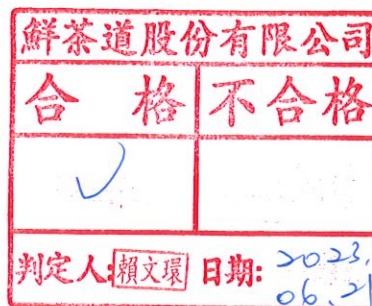 鮮茶道股份有限公司
合格 不合格
✓
判定人: 賴文環 日期: 2023.
06.21